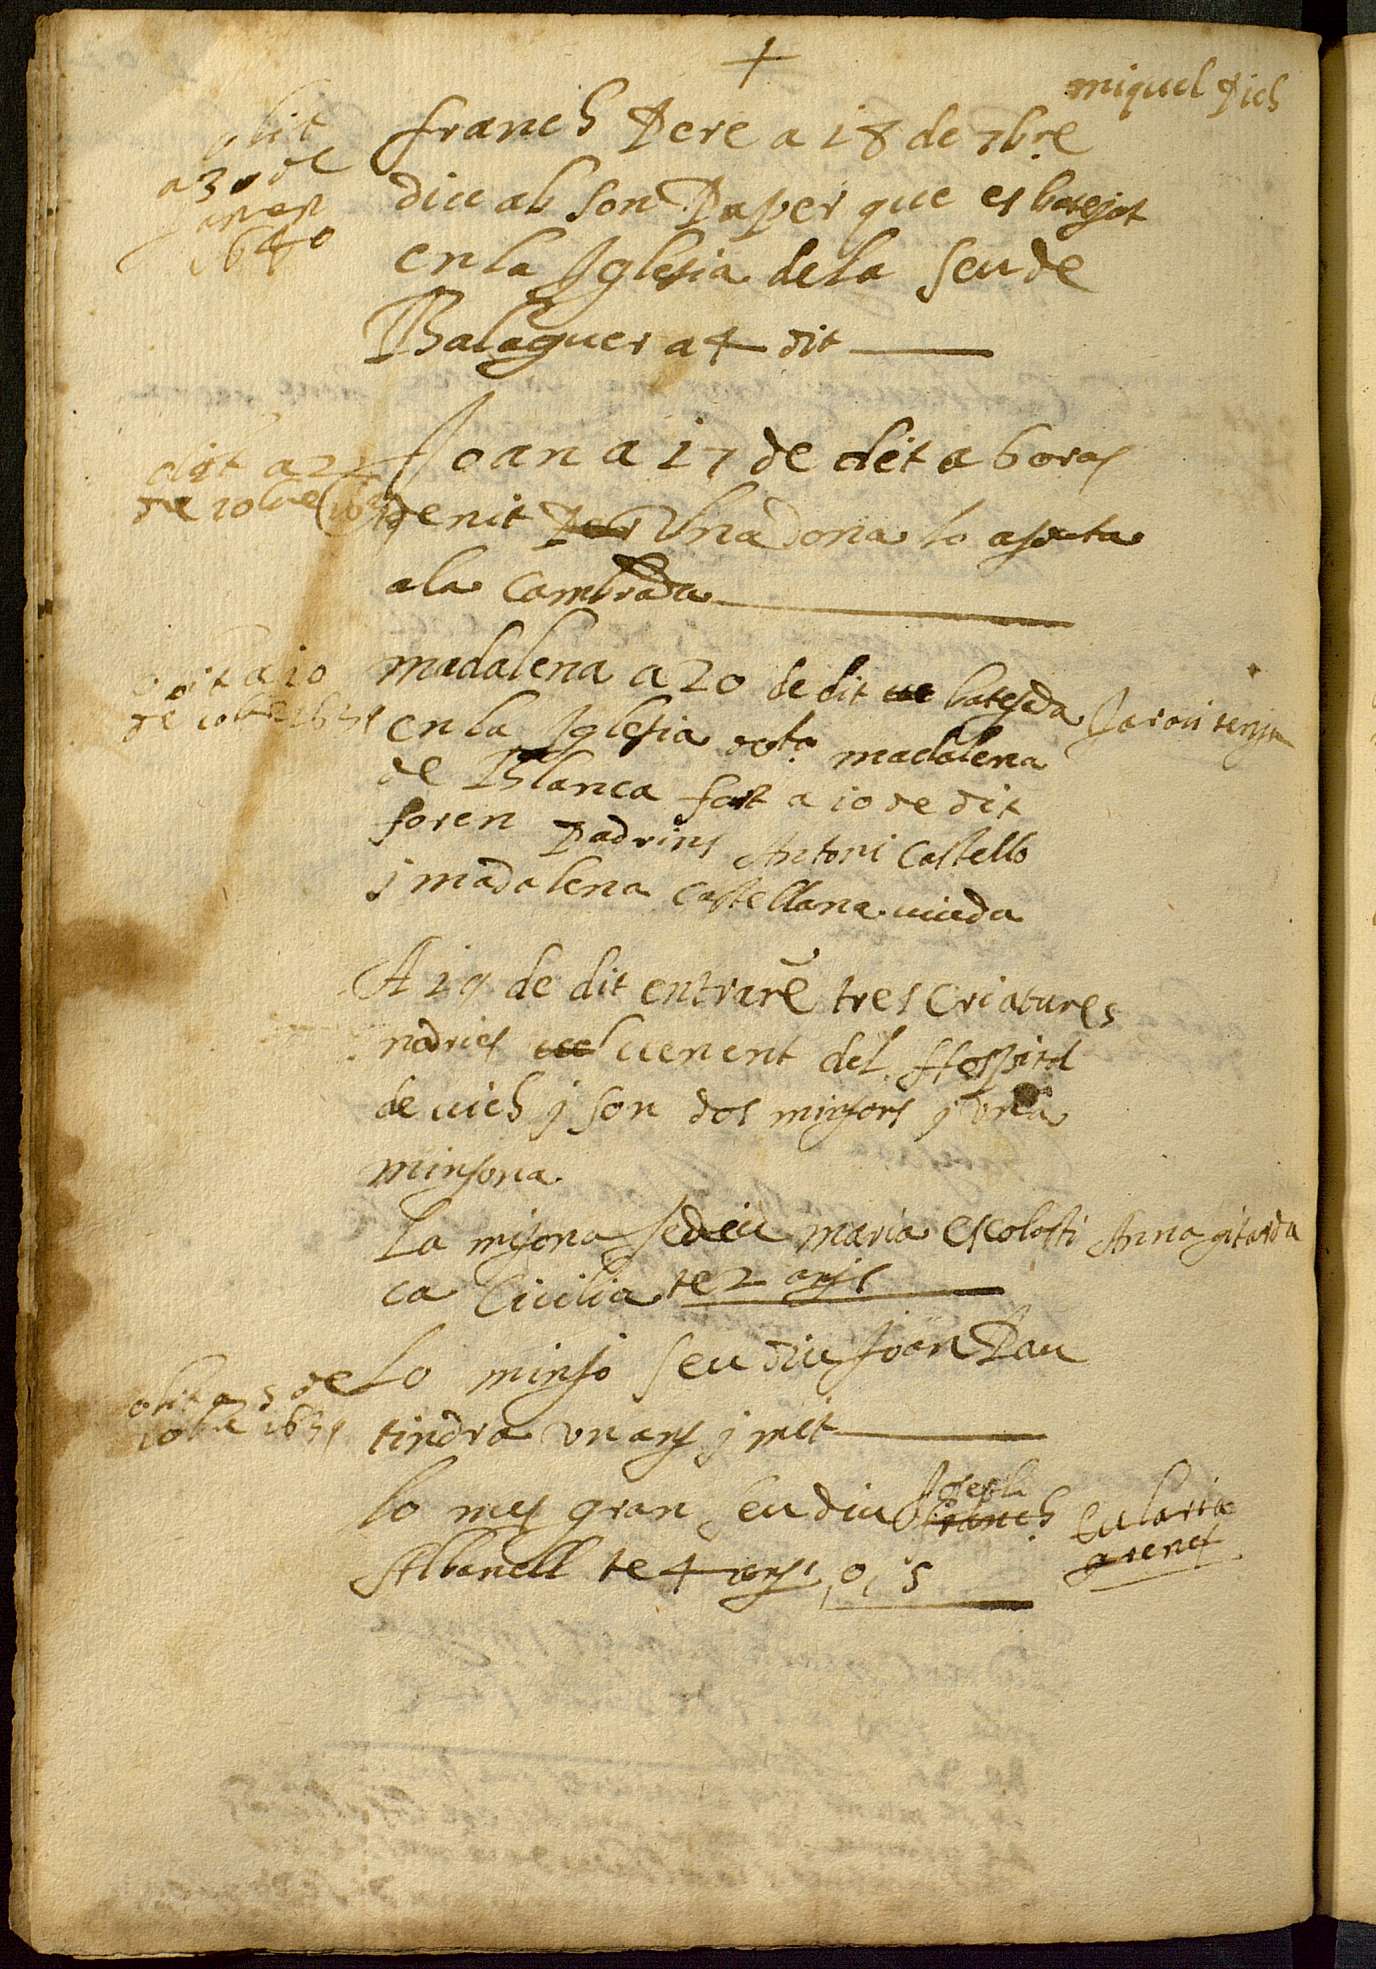 +
miquel Pich
obit
a 30 de
1640
franch Pere a 18 de 7bre
diu ab son Paper que es batejat
en la Iglesia de la Seu de
Balaguer a 4 dit
obit a 22
de 10bre
Joan a 17 de dit a 6 oras
de nit Per Vna dona lo aporta
a la Cambrada
obit a 10
de 10bre 1639
madalena a 20 de dit batejada
en la Iglesia de sta madalena
de Blanca fort a 10 de dit
foren Padrins Antoni Castello
j madalena Castellana viuda
A 19 de dit entrarē tres Criatures
nodries venent del Hospital
de vich j son dos minyons j vna
minyona
La miyona se deu maria escolasti Anna gitarda
ca Cicilia te 2 anys
obit a 5 de
10bre 1639
Lo minyo seu diu Joan Pau
tindra vn any j mit
lo mes gran seu diu Joseph franch
Albanell te 4 anys, o, 5
Eularia